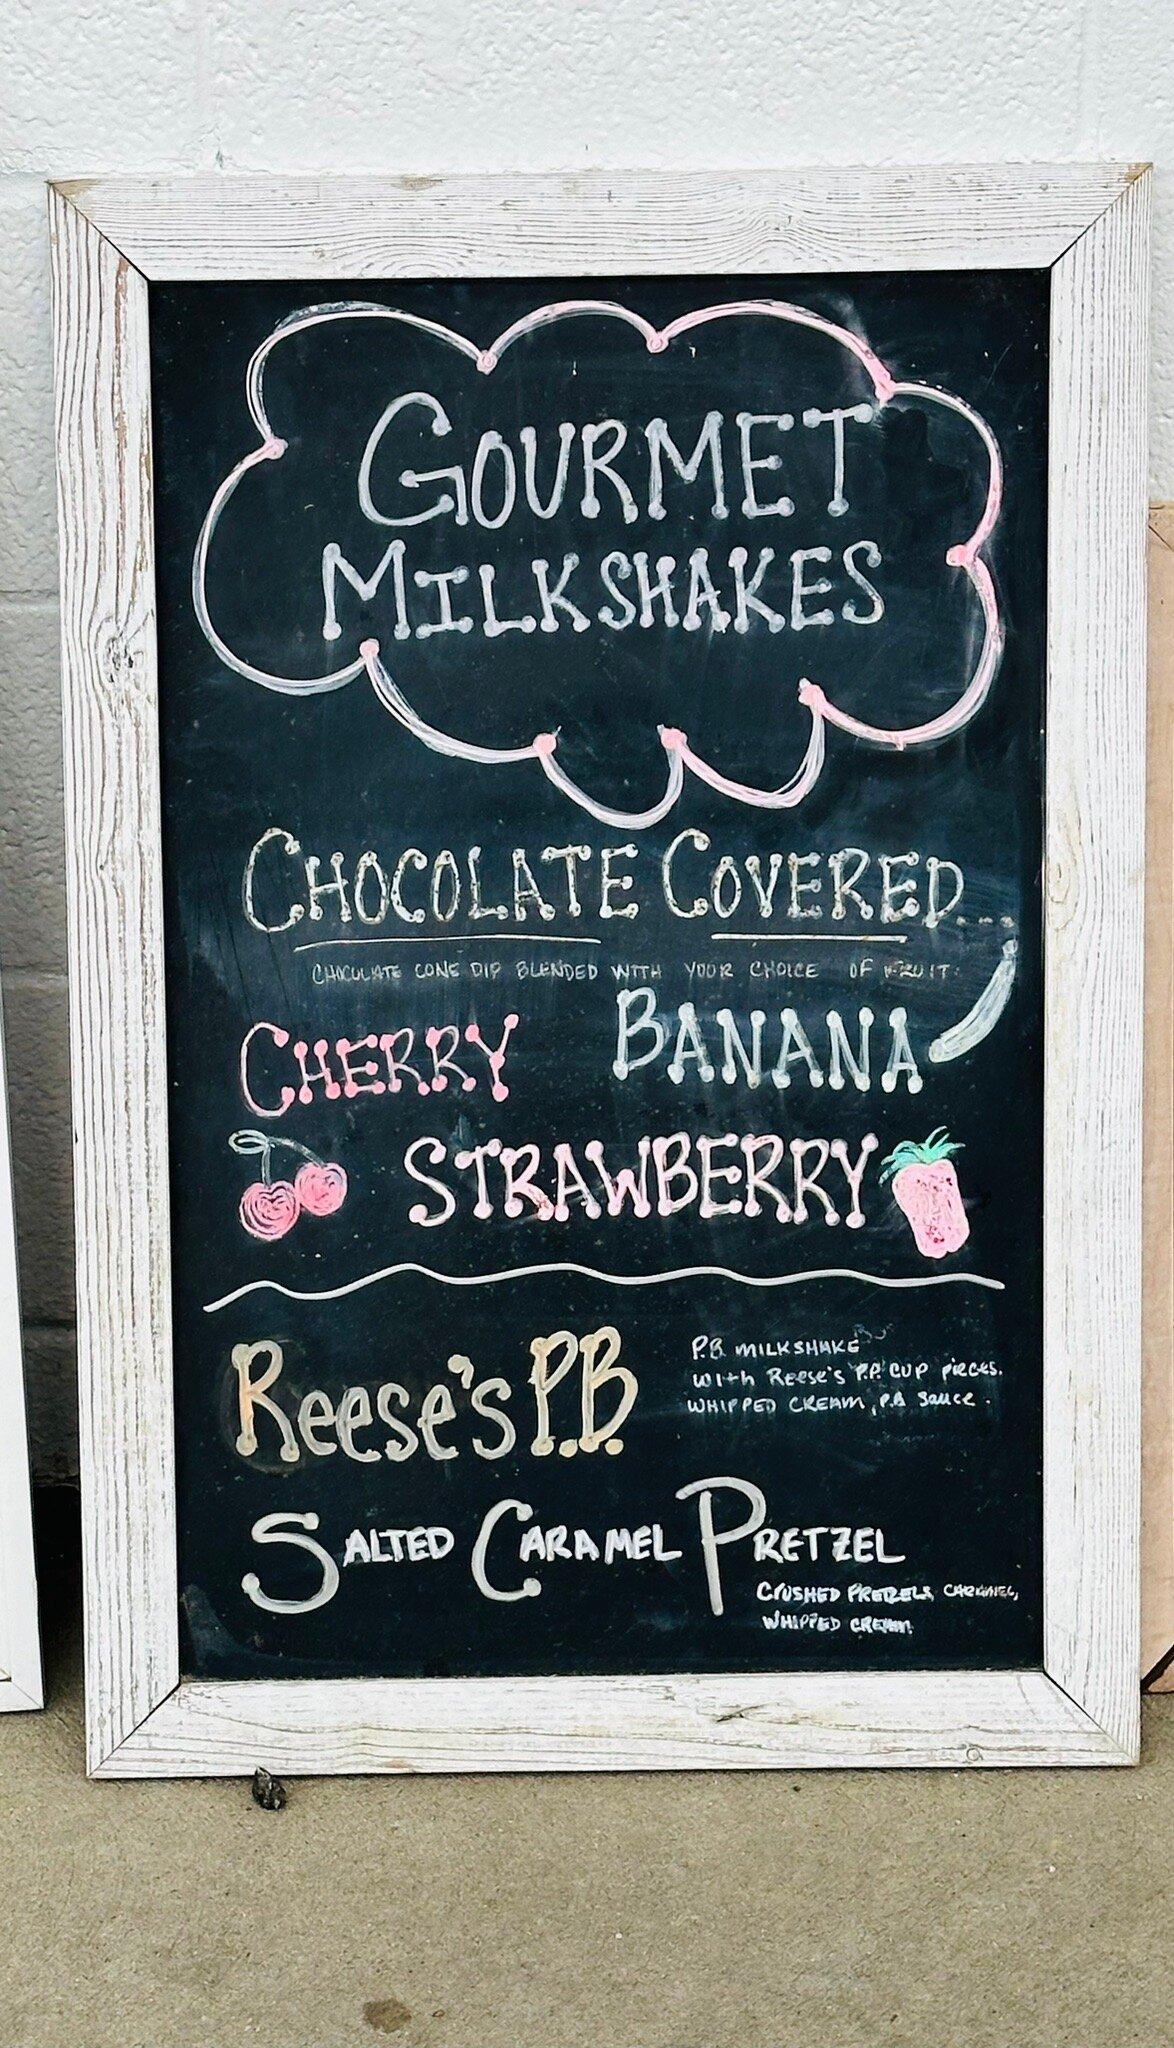 GOURMET
MILKSHAKES
CHOCOLATE COVERED...
CHOCOLATE CONE DIP BLENDED WITH YOUR CHOICE OF FRUIT.
CHERRY BANANA
STRAWBERRY
REESE'S P.B.
P.B. MILKSHAKE
WITH REESE'S P.P. CUP PIECES.
WHIPPED CREAM, P.B SAUCE.
SALTED CARAMEL PRETZEL
CRUSHED PRETZELS, CARAMEL,
WHIPPED CREAM